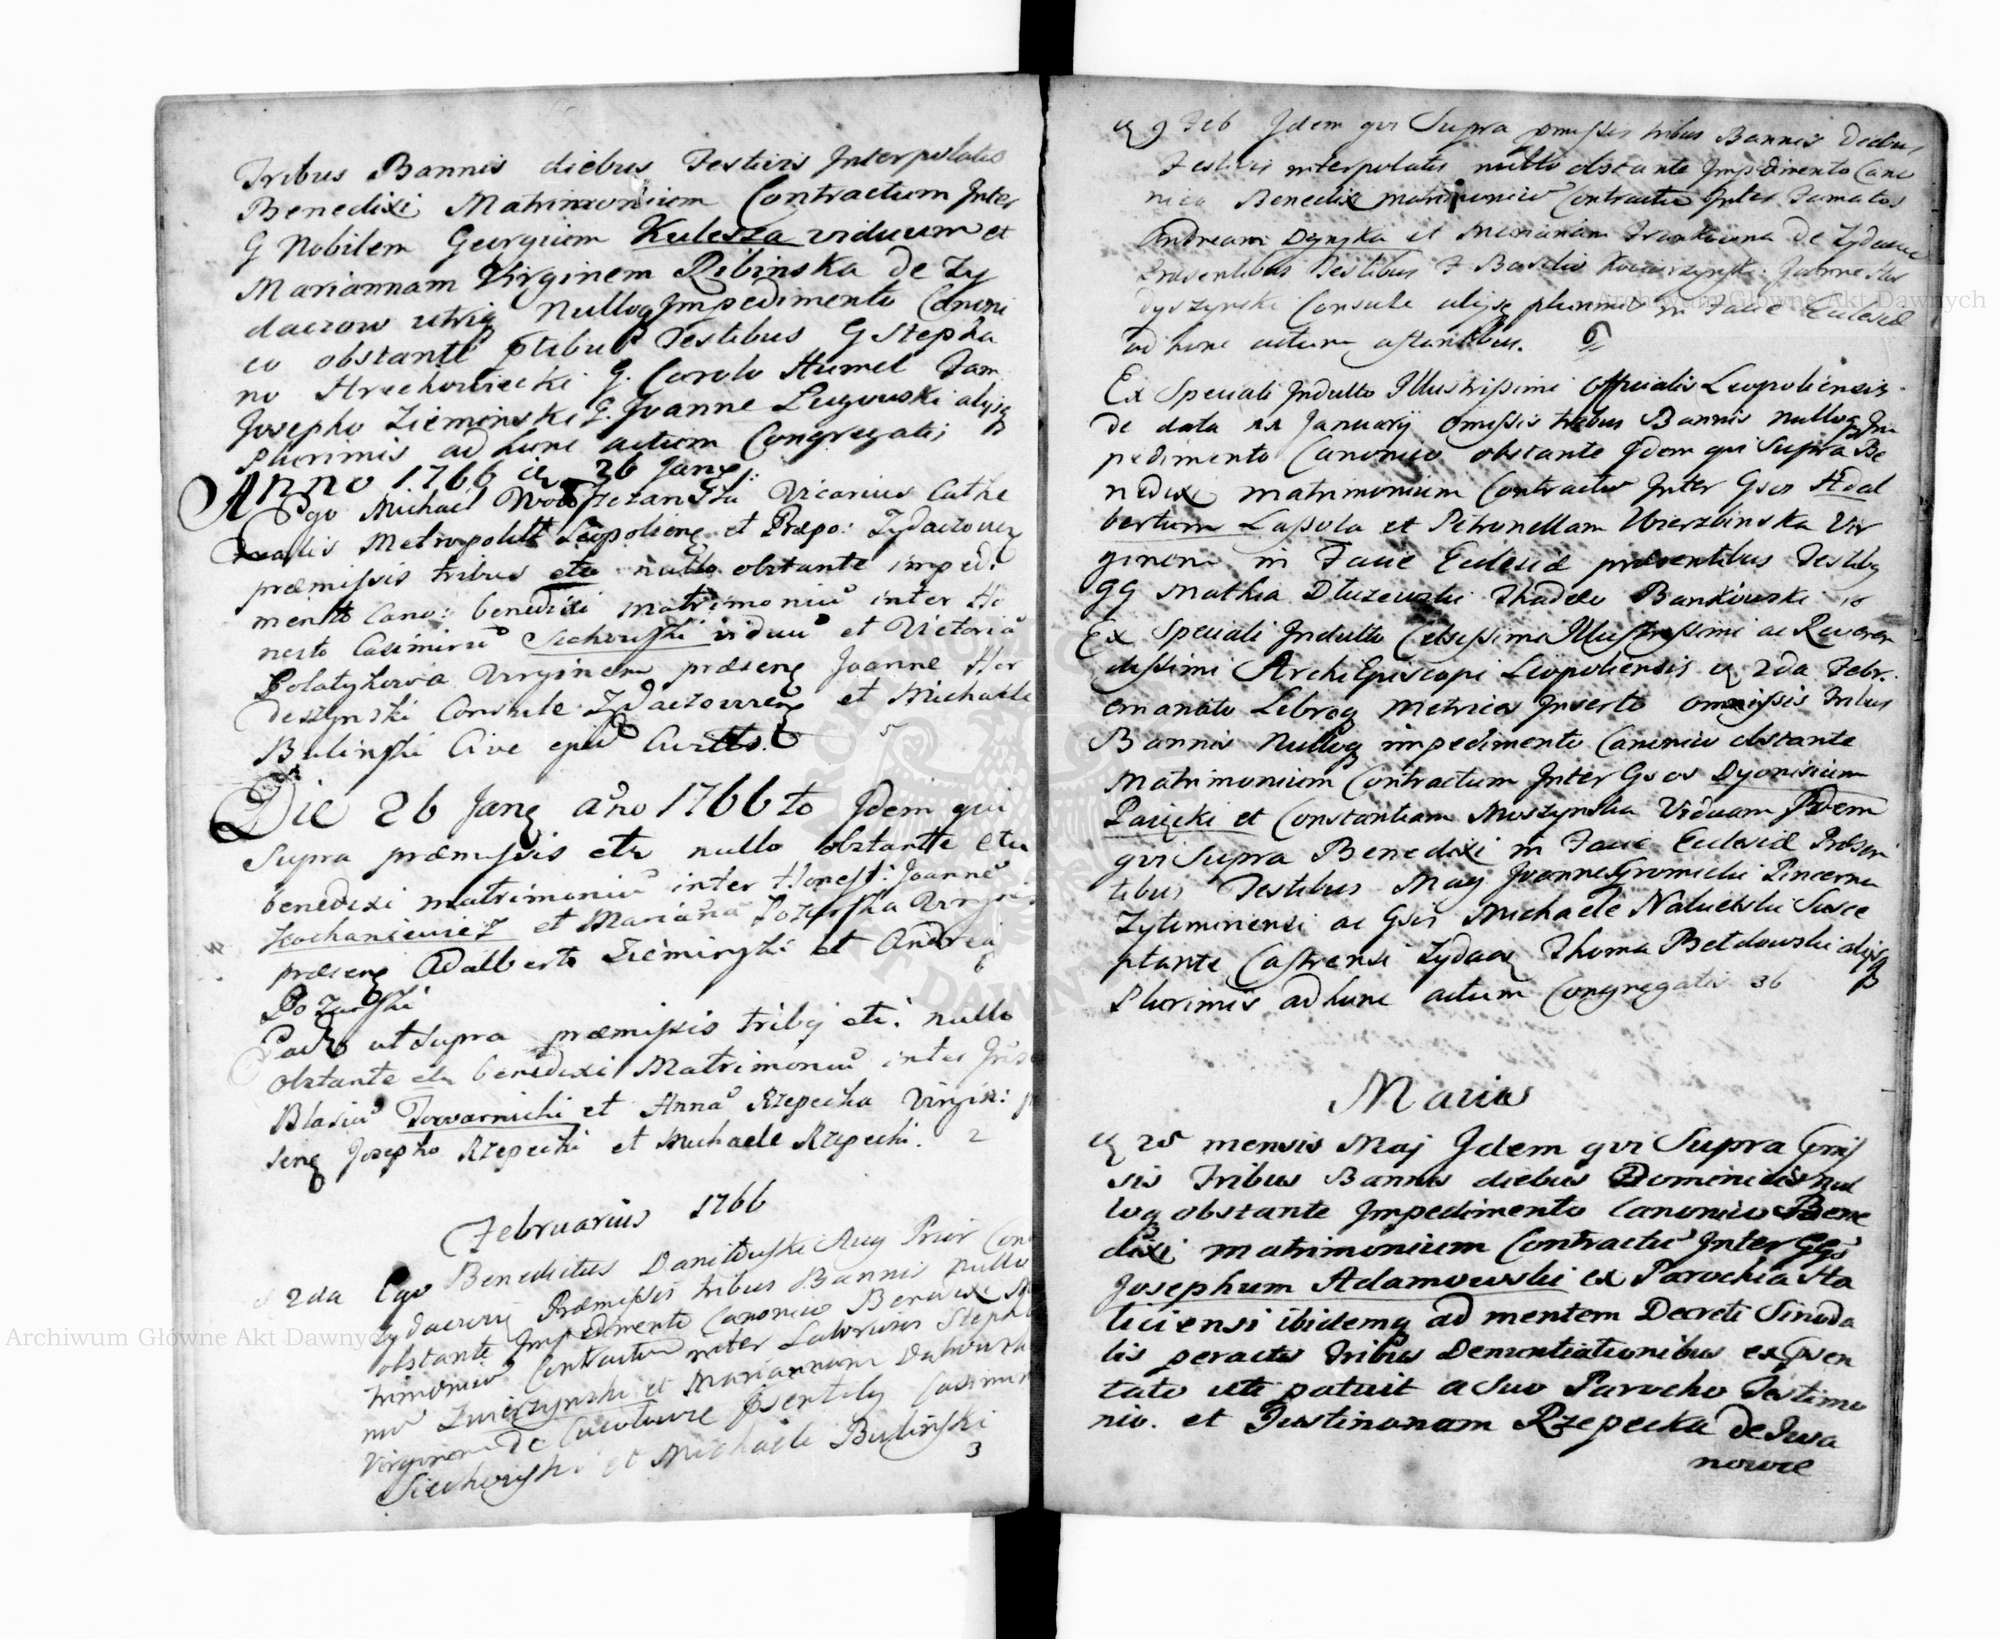 Tribus Bannis diebus Festivis Interpolatis
Benedixi Matrimonium Contractum Inter
G Nobilem Georgium Kulesza viduum et
Mariannam Virginem Ribinska de Zy
daczow utriq Nulloq Impedimento Canoni
co obstante ptibus Testibus G Stepha
no Strzechowiecki G. Carolo Humel Fam
Josepho Zieminski G. Joanne Lugowski alijsq
plurimis ad hunc actum Congregatis
Anno 1766 26 Janq:
Ego Michael Vicarius Cathe
dralis Metropolitt Leopolieng et Præpo: Zydaczovieng
præmissis tribus etc nullo obstante impedi
mento Cano: benedixi matrimoniu inter Ho
nesto Casimiru Siechowski viduu et Victoria
Polatykowa Virginem præseng Joanne Hor
deszynski Consule Zydaczovieng et Michaele
Bulinski Cive
Die 26 Janq año 1766to Idem qui
Supra præmissis etc nullo obstante etc
benedixi matrimoniu inter Honest: Joanne
Kochaniewicz et Mariana Pozarska Virgi
præseng Adalberto Ziemirski et Andrea
Pozarski 6
Eade ut Supra præmissis tribq etc. nullo
obstante etc benedixi Matrimoniu inter
Blasiu Towarnicki et Anna Rzepecka Virgin:
seng Josepho Rzepecki et Michaele Rzepecki. 2
Februarius 1766
2da Ego Benedictus Danilewski Aug Prior Con
Zydaczovię Præmissis tribus Bannis nullo
obstante Impedimento Canonico Benedixi
trimoniu Contractu inter Laborosos Stepha
nu Zwierzynski et Mariannam
Virginem De psentibq Casimir
Siechowski et Michaele Bulinski
3
9 Feb Idem qui Supra pmissis tribus Bannis Diebus
Festivis interpolatis nullo obstante Impedimento Cano
nico Benedixi matrimoniu Contractu Inter Famatos
Andream Dynska et Mariannam de Zydaczow
Præsentibus Testibus F Basilio Joanne Hor
dyszynski Consule alijsq plurimis in Facie Ecclesiæ
ad hunc actum astantibus. 6
Ex Speciali Indulto Illustrissimi Officialis Leopoliensis
de data 21 January omissis tribus Bannis nulloq Im
pedimento Canonico obstante Idem qui Supra Be
nedixi matrimonium Contractu Inter Gsos Adal
bertum Lassota et Petronellam Wierzbinska Vir
ginem in Facie Ecclesiæ præsentibus Testibq
GG Mathia Dluzewski Thadeo Bankowski 10
Ex Speciali Indulto Celsissimi Illustrissimi ac Reveren
dissimi ArchiEpiscopi Leopoliensis 2da Febr.
emanato Libroq Metrices Inserto omissis Tribus
Bannis Nulloq impedimento Canonico obstante
Matrimonium Contractum Inter Gsos Dyonisium
Pasięcki et Constantiam Moszynska Viduam Idem
qui Supra Benedixi in Facie Ecclesiæ Præsen
tibus Testibus Mag Joanne Gromicki Pincerna
Zytomiriensi ac Gsis Michaele Naluewski Susce
ptante Castrensi Zydacz Thoma Betdowski alijsq
Plurimis ad hunc actum Congregatis 36
Maius
25 mensis Maj Idem qui Supra pmis
sis Tribus Bannis diebus Dominicis nul
loq obstante Impedimento Canonico Bene
dixi matrimonium Contractu Inter GGs
Josephum Adamowski ex Parochia Ha
liciensi ibidemq ad mentem Decreti Sinoda
lis peractis Tribus Denuntiationibus ex psen
tato uti patuit a Suo Parocho Testimo
nio. et Justinanam Rzepecka de Iwa
nowce
Archiwum Główne Akt Dawnych
Archiwum Główne Akt Dawnych